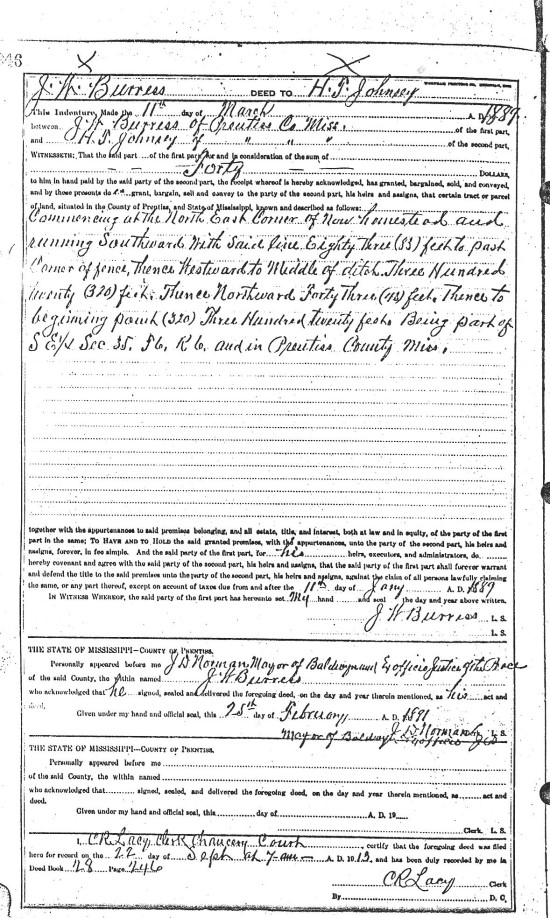 246
J. W. Burress DEED TO H. T. Johnsey
This Indenture, Made the 11th day of March A. D. 1889
between J. W. Burress of Prentiss Co. Miss. of the first part,
and H. T. Johnsey of " " " of the second part,
WITNESSETH: That the said part ... of the first part for and in consideration of the sum of
Forty DOLLARS,
to him in hand paid by the said party of the second part, the receipt whereof is hereby acknowledged, has granted, bargained, sold, and conveyed,
and by these presents do grant, bargain, sell and convey to the party of the second part, his heirs and assigns, that certain tract or parcel
of land, situated in the County of Prentiss, and State of Mississippi, known and described as follows:
Commencing at the North East Corner of Now homestead and
running Southward With Said line Eighty Three (83) feet to past
Corner of fence, Thence Westward to Middle of ditch Three Hundred
twenty (320) feet. Thence Northward Forty Three (43) feet. Thence to
beginning point (320) Three Hundred twenty feet. Being part of
S E/4 Sec 35. T6. R6. and in Prentiss County Miss.
together with the appurtenances to said premises belonging, and all estate, title, and interest, both at law and in equity, of the party of the first
part in the same; TO HAVE AND TO HOLD the said granted premises, with the appurtenances, unto the party of the second part, his heirs and
assigns, forever, in fee simple. And the said party of the first part, for his heirs, executors, and administrators, do
hereby covenant and agree with the said party of the second part, his heirs and assigns, that the said party of the first part shall forever warrant
and defend the title to the said premises unto the party of the second part, his heirs and assigns, against the claim of all persons lawfully claiming
the same, or any part thereof, except on account of taxes due from and after the 11th day of Jany A. D. 1889
IN WITNESS WHEREOF, the said party of the first part has hereunto set My hand and seal the day and year above written.
J W Burress L. S.
L. S.
THE STATE OF MISSISSIPPI—COUNTY OF PRENTISS.
Personally appeared before me J D Norman, Mayor of Baldwyn and Ex officio Justice of the Peace
of the said County, the within named J W Burress
who acknowledged that he signed, sealed and delivered the foregoing deed, on the day and year therein mentioned, as his act and
deed.
Given under my hand and official seal, this 25th day of February A. D. 1891
J D Norman L. S.
Mayor of Baldwyn & Ex officio J P
THE STATE OF MISSISSIPPI—COUNTY OF PRENTISS.
Personally appeared before me
of the said County, the within named
who acknowledged that signed, sealed, and delivered the foregoing deed, on the day and year therein mentioned, as act and
deed.
Given under my hand and official seal, this day of A. D. 19
Clerk. L. S.
I, C R Lacy, Clerk Chancery Court, certify that the foregoing deed was filed
here for record on the 22 day of Sept at 7 am A. D. 1913, and has been duly recorded by me in
Deed Book 28 Page 246
C R Lacy Clerk
By D. C.